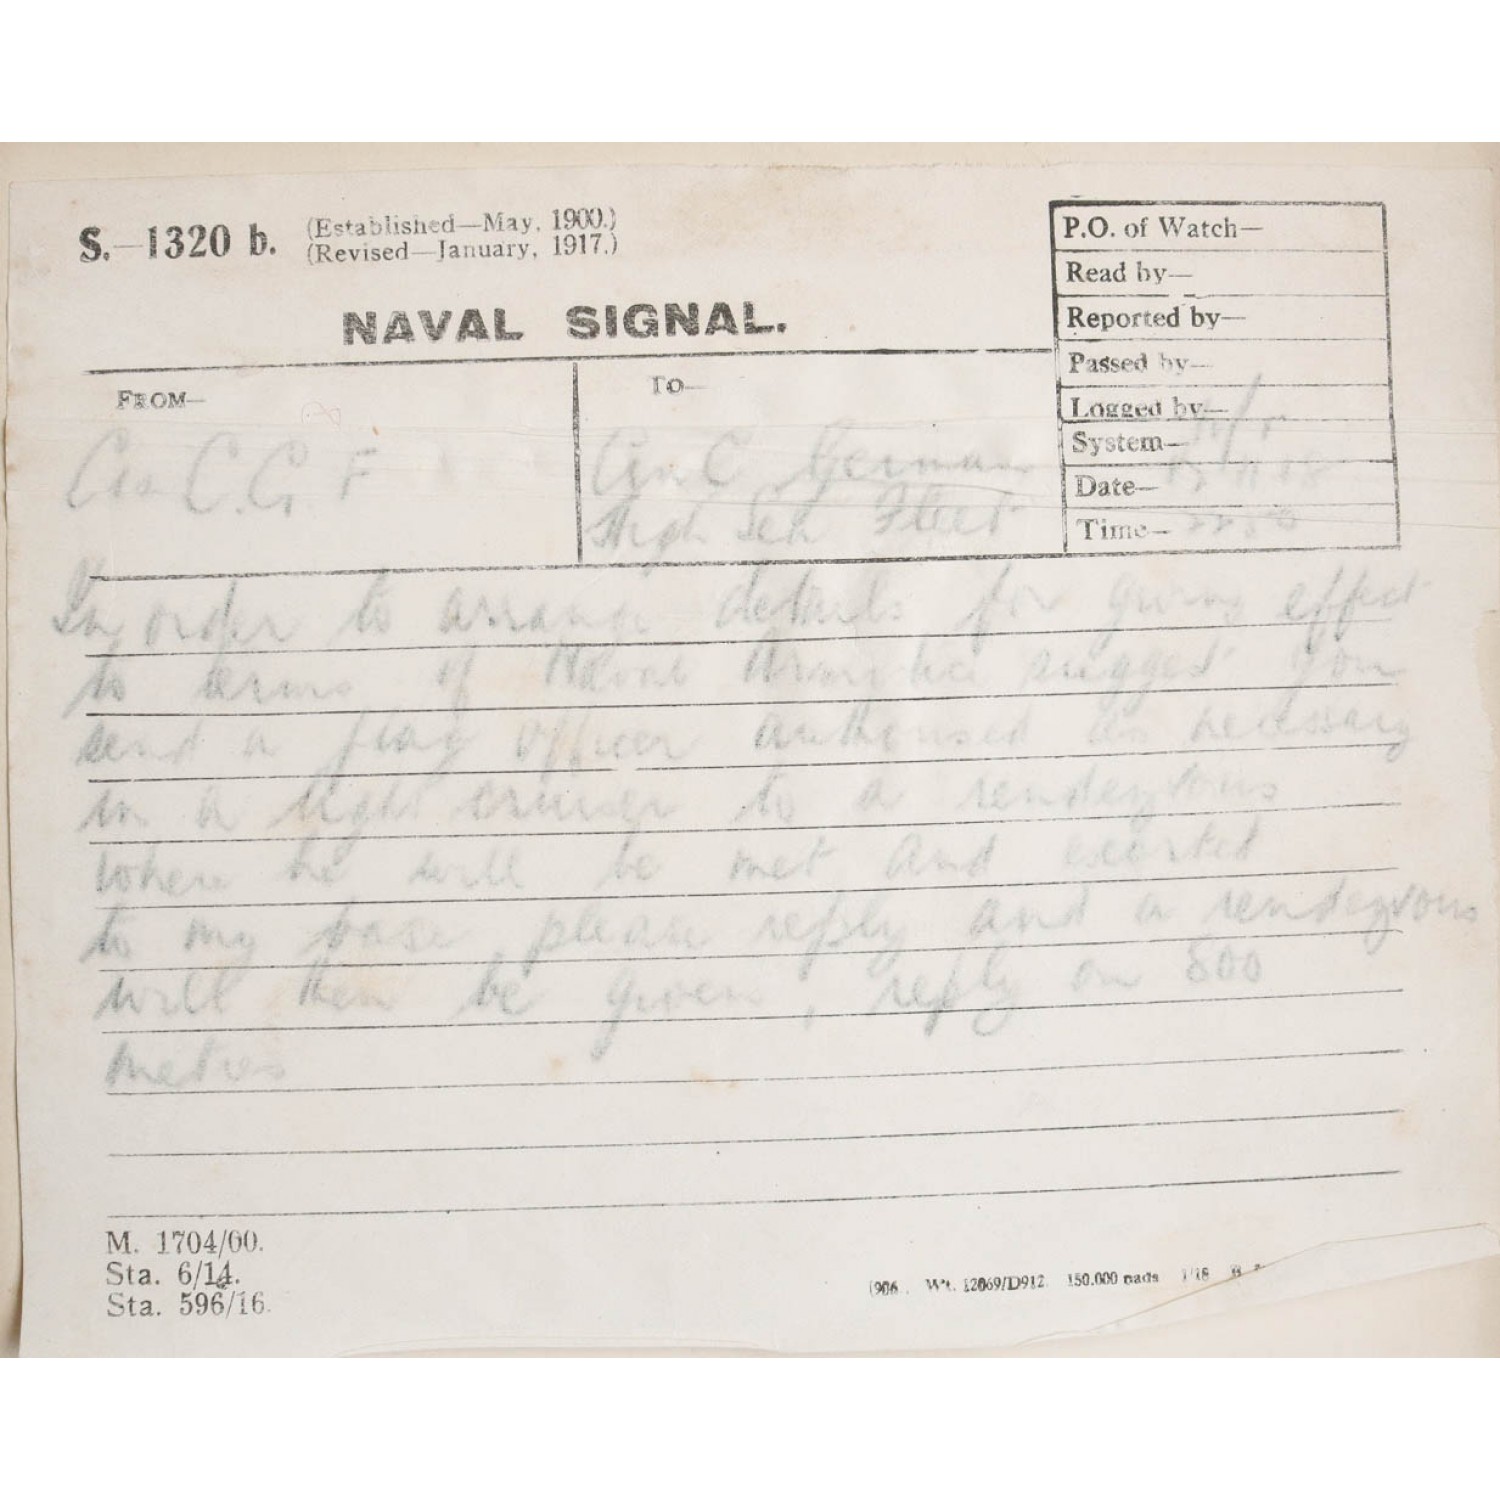 S.—1320 b. (Established—May, 1900.)
(Revised—January, 1917.)
NAVAL SIGNAL.
P.O. of Watch—
Read by—
Reported by—
Passed by—
Logged by—
System— W/T
Date— 11 18
Time—
FROM—
C in C. G. F
TO—
C in C German
High Sea Fleet
In order to arrange details for giving effect
to terms of Naval Armistice suggest you
send a flag officer authorised as necessary
in a light cruiser to a rendezvous
where he will be met and escorted
to my base please reply and a rendezvous
will then be given, reply on 800
metres
M. 1704/00.
Sta. 6/14.
Sta. 596/16.
Wt. 12069/D912. 150,000 pads 1/18